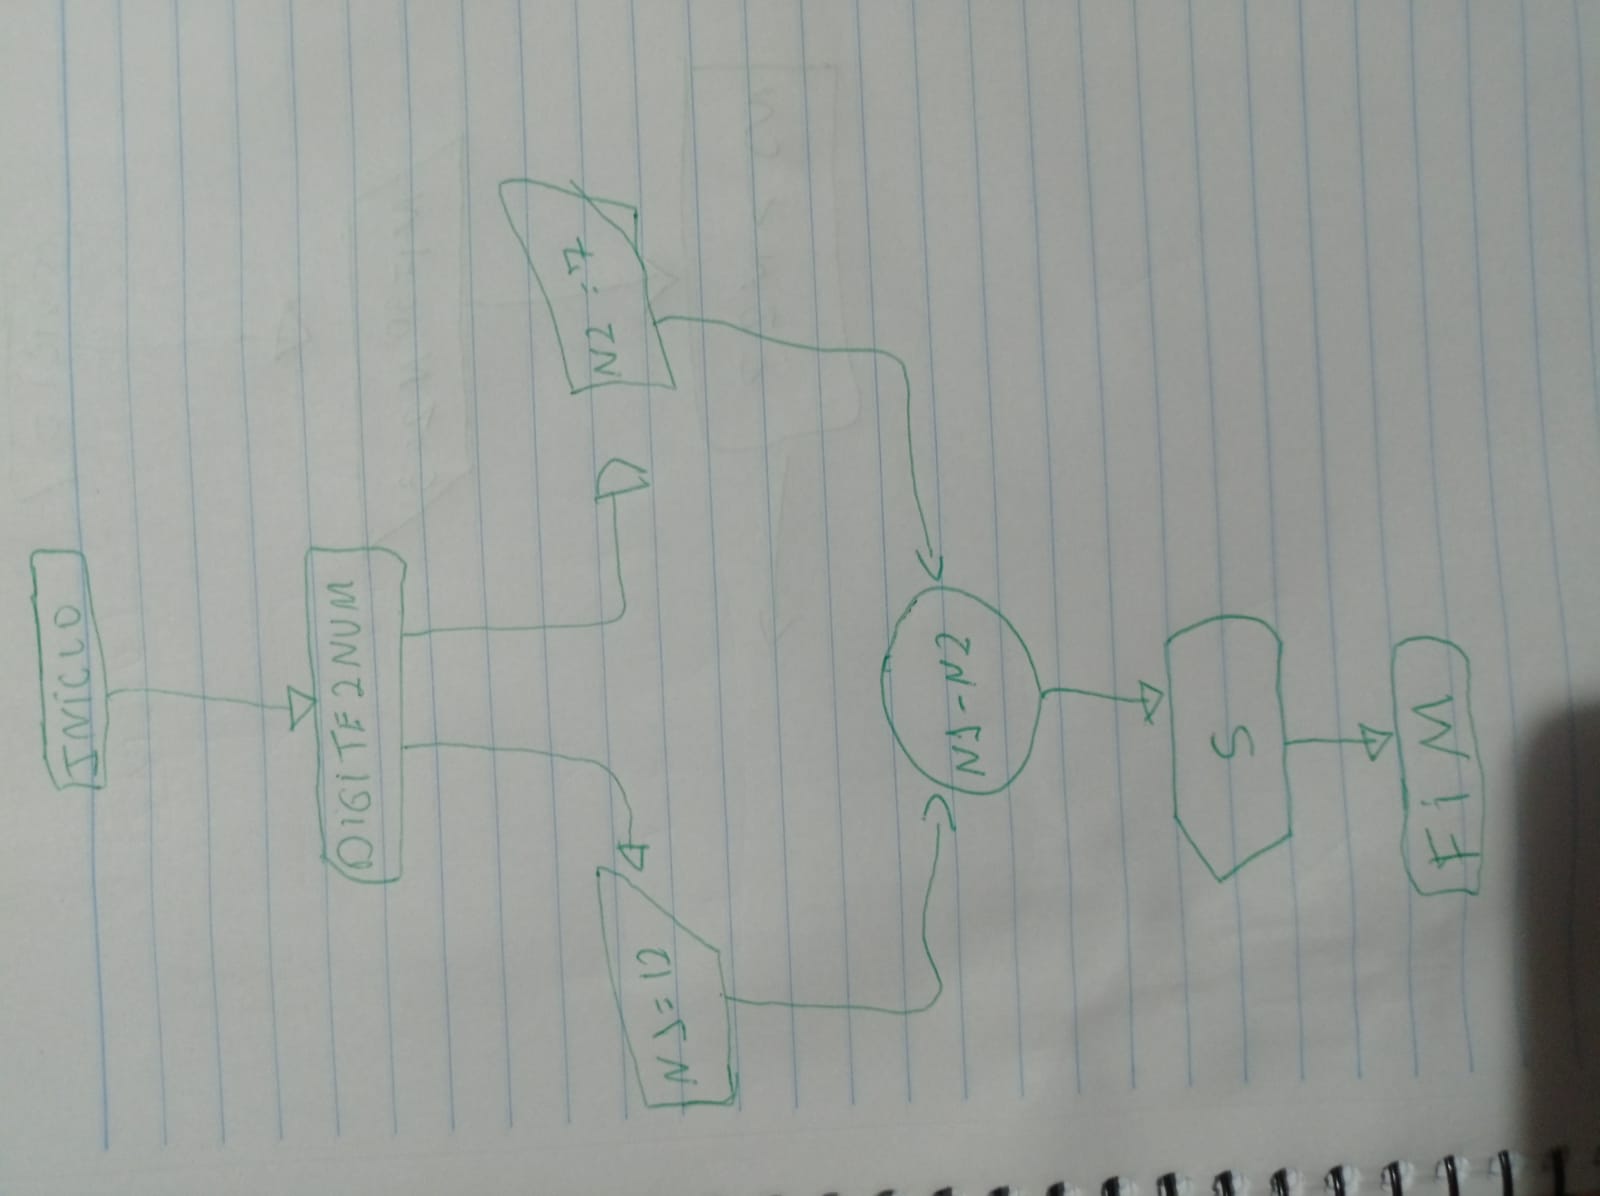 INICIO
DIGITE 2 NUM
N1=12
N2:7
N1-N2
5
FiM